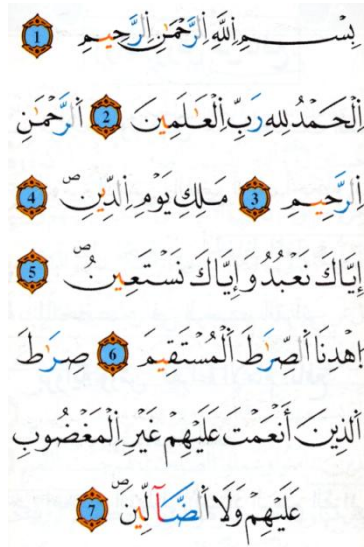 بِسْمِ اِللَّهِ اِلرَّحْمَٰنِ اِلرَّحِيمِ 1
اِلْحَمْدُ لِلهِ رَبِّ اِلْعَٰلَمِينَ 2 اَلرَّحْمَٰنِ
اِلرَّحِيمِ 3 مَلِكِ يَوْمِ اِلدِّينِ ص 4
إِيَّاكَ نَعْبُدُ وَإِيَّاكَ نَسْتَعِينُ ص 5
اِهْدِنَا اَلصِّرَٰطَ اَلْمُسْتَقِيمَ 6 صِرَٰطَ
اَلذِينَ أَنْعَمْتَ عَلَيْهِمْ غَيْرِ اِلْمَغْضُوبِ
عَلَيْهِمْ وَلَا اَلضَّآلِّينَ ص 7